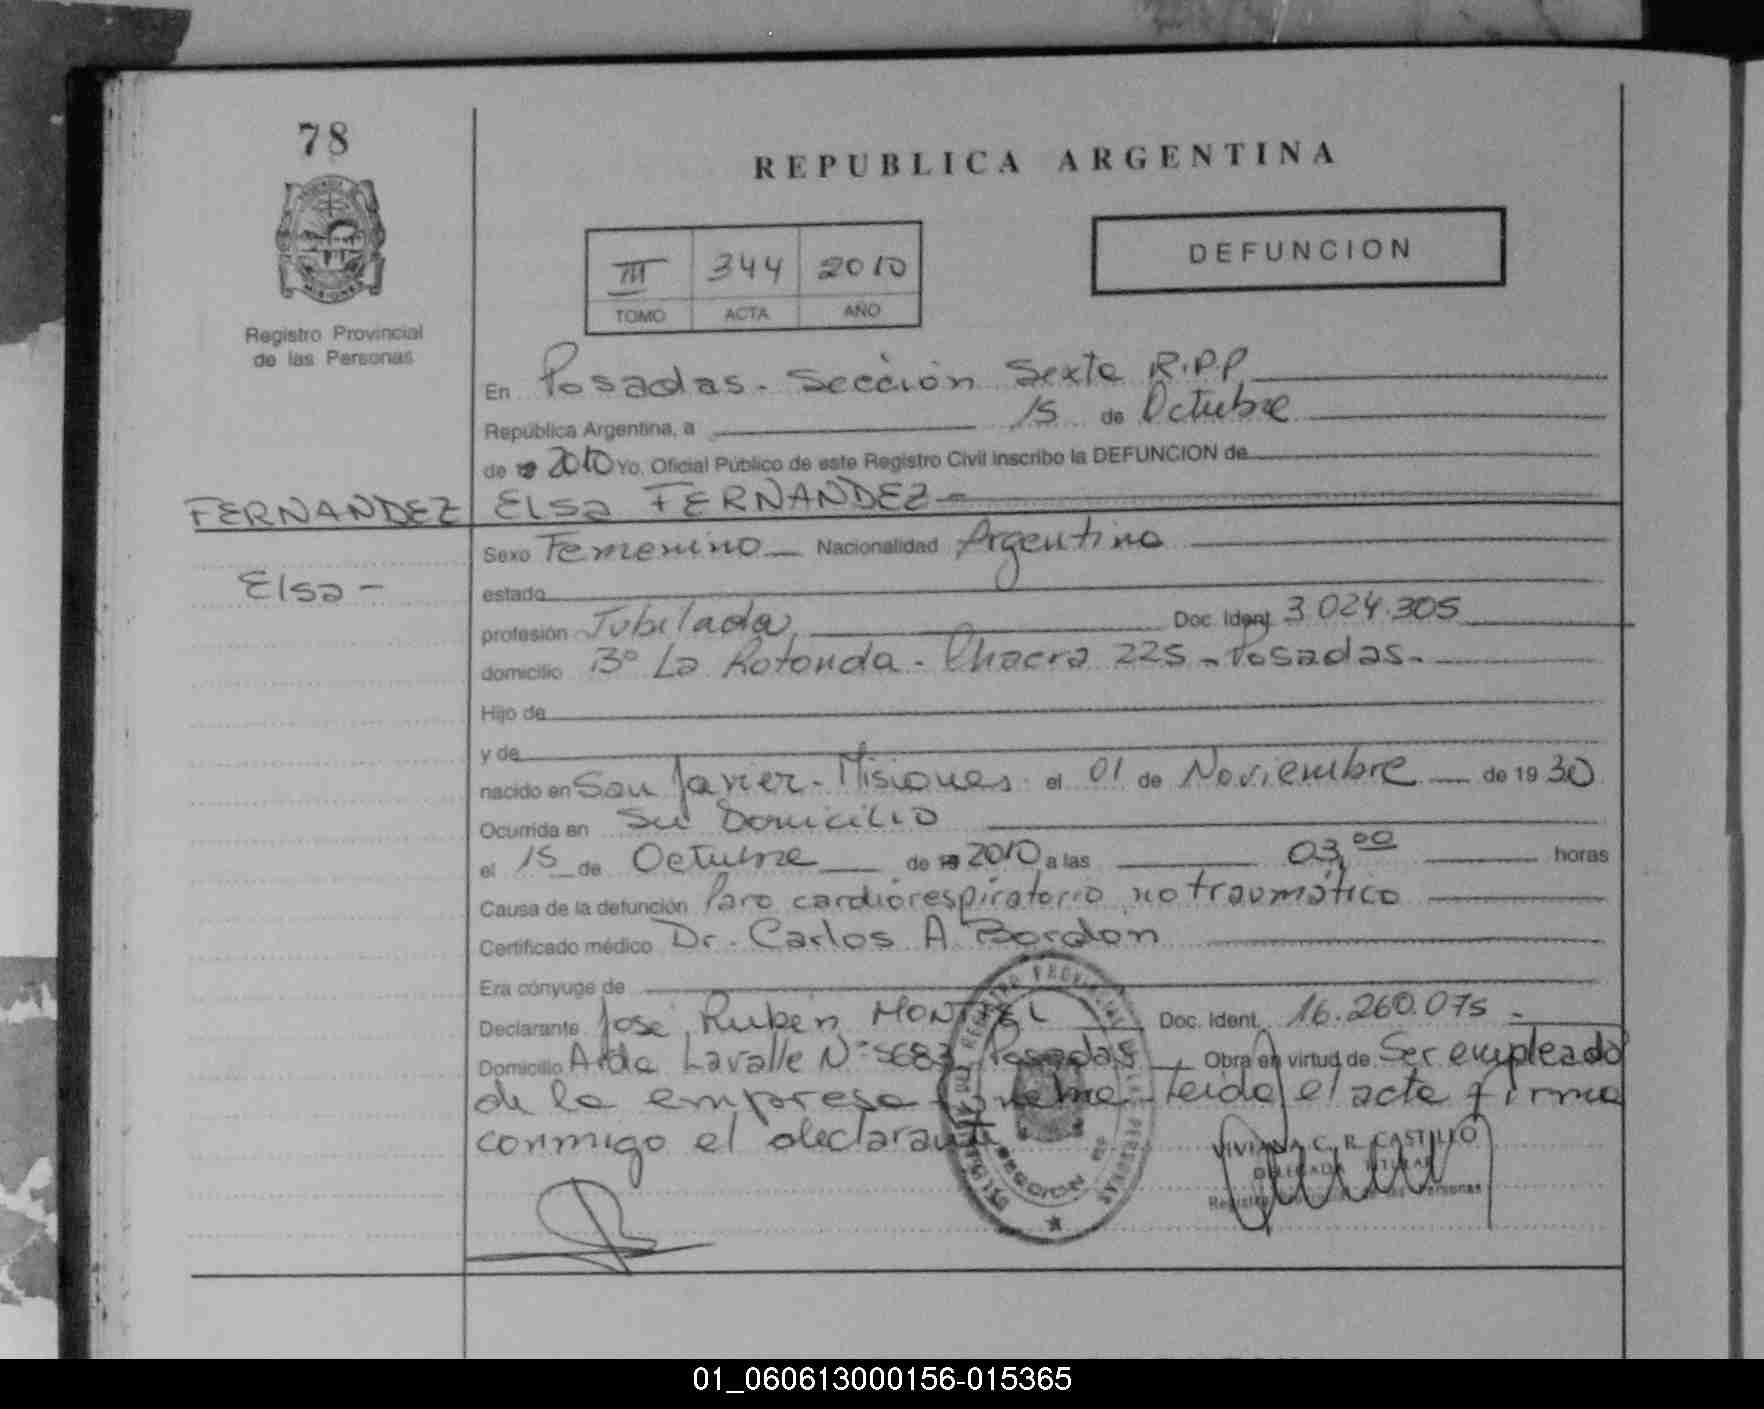 78
REPUBLICA ARGENTINA
III 344 2010
TOMO ACTA AÑO
DEFUNCION
MISIONES
Registro Provincial
de las Personas
En Posadas - Sección Sexta R.P.P
República Argentina, a 15 de Octubre
de 19 2010 Yo, Oficial Público de este Registro Civil inscribo la DEFUNCION de
FERNANDEZ ELSA FERNANDEZ -
Elsa -
Sexo Femenino Nacionalidad Argentina
estado
profesión Jubilada Doc. Ident. 3.024.305
domicilio B° La Rotonda - Chacra 225 - Posadas -
Hijo de
y de
nacido en San Javier - Misiones el 01 de Noviembre de 1930
Ocurrida en Su Domicilio
el 15 de Octubre de 19 2010 a las 03,00 horas
Causa de la defunción Paro cardiorespiratorio no traumático
Certificado médico Dr. Carlos A Bordon
Era cónyuge de
Declarante José Ruben MONTIEL Doc. Ident. 16.260.075 -
Domicilio Avda Lavalle N° 5683 Posadas Obra en virtud de Ser empleado
de la empresa fúnebre - Leída el acta firma
conmigo el declarante
VIVIANA C. R. CASTILLO
DELEGADA TITULAR
Registro Provincial de las Personas
01_060613000156-015365